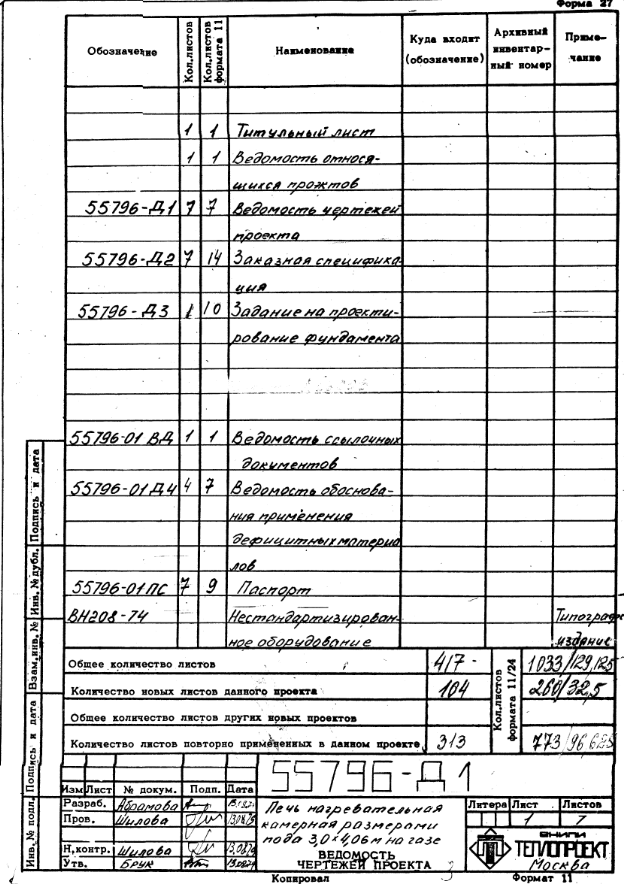 Форма 27
Обозначение Кол.листов Кол.листов формата 11 Наименование Куда входит (обозначение) Архивный инвентарный номер Примечание
1 1 Титульный лист
1 1 Ведомость относя-
щихся проектов
55796-Д1 7 7 Ведомость чертежей
проекта
55796-Д2 7 14 Заказная специфика
ция
55796-Д3 1 10 Задание на проекти-
рование фундамента
55796-01 ВД 1 1 Ведомость ссылочных
документов
55796-01Д4 4 7 Ведомость обоснова-
ния применения
дефицитных материа
лов
55796-01ПС 7 9 Паспорт
ВН208-74 Нестандартизирован- Типограф
ное оборудование издание
Общее количество листов 417 - Кол.листов формата 11/24 1033/129,125
Количество новых листов данного проекта 104 260/32,5
Общее количество листов других новых проектов
Количество листов повторно примененных в данном проекте 313 773/96,625
55796-Д1
Изм Лист № докум. Подп. Дата
Разраб. Абрамова
Пров. Шилова
Н.контр. Шилова
Утв. Брук
Печь нагревательная
камерная размерами
пода 3,0×4,06м на газе
ВЕДОМОСТЬ
ЧЕРТЕЖЕЙ ПРОЕКТА
Литера Лист Листов
1 7
ВНИПИ
ТЕПЛОПРОЕКТ
Москва
3
Копировал Формат 11
Инв.№ подл. Подпись и дата Взам.инв.№ Инв.№ дубл. Подпись и дата